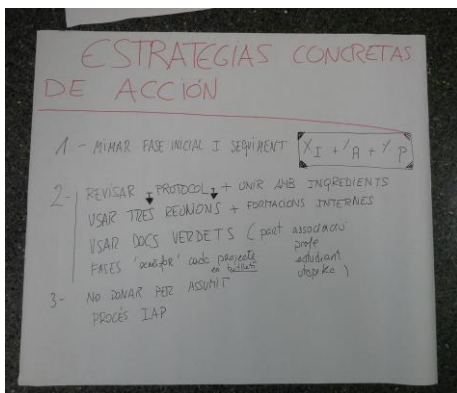 ESTRATEGIAS CONCRETAS
DE ACCIÓN
1.- MIMAR FASE INICIAL I SEGUIMENT % I + % A + % P
2- REVISAR PROTOCOL + UNIR AMB INGREDIENTS
USAR TRES REUNIONS + FORMACIONS INTERNES
USAR DOCS VERDETS (part associació
profe
estudiant
FASES cada projecte
en
3- NO DONAR PER ASSUMIT
PROCÉS IAP